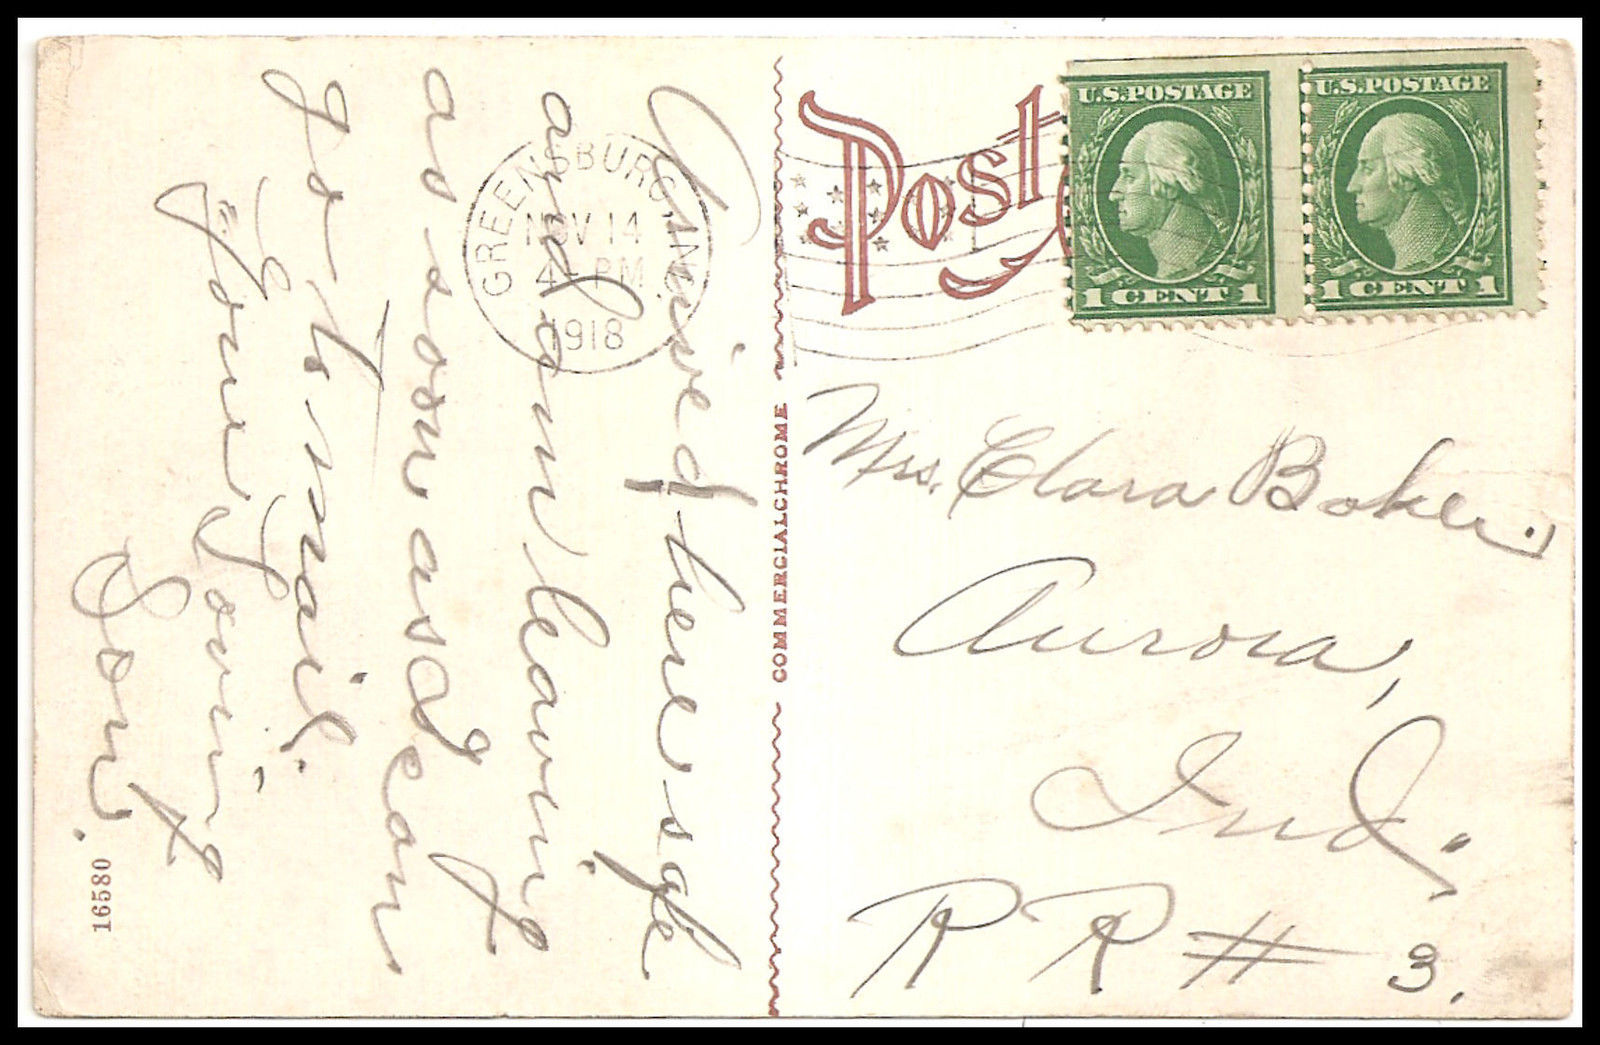 Arrived here safe
and am leaving
as soon as I can
go to mail.
Your Loving
Son.
16580
GREENSBURG, IND.
NOV 14
4- PM
1918
COMMERCIALCHROME
Post
U.S. POSTAGE
1 CENT 1
U.S. POSTAGE
1 CENT 1
Mrs. Clara Baker.
Aurora,
Ind.
RR # 3.